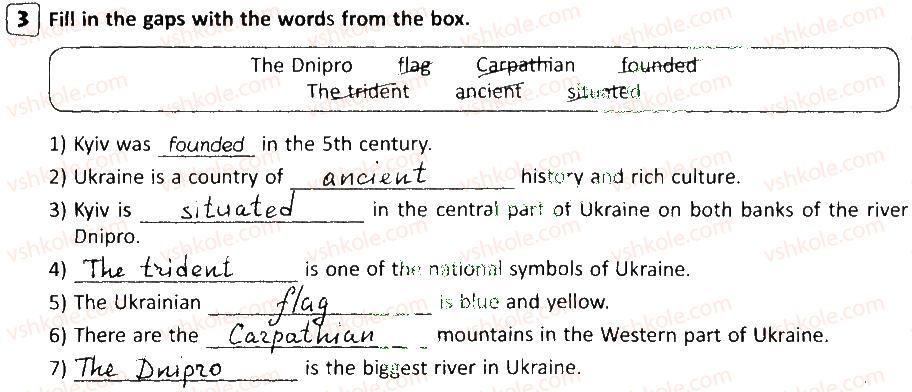 3 Fill in the gaps with the words from the box.
The Dnipro flag Carpathian founded
The trident ancient situated
1) Kyiv was founded in the 5th century.
2) Ukraine is a country of ancient history and rich culture.
3) Kyiv is situated in the central part of Ukraine on both banks of the river
Dnipro.
4) The trident is one of the national symbols of Ukraine.
5) The Ukrainian flag is blue and yellow.
6) There are the Carpathian mountains in the Western part of Ukraine.
7) The Dnipro is the biggest river in Ukraine.
vshkole.com